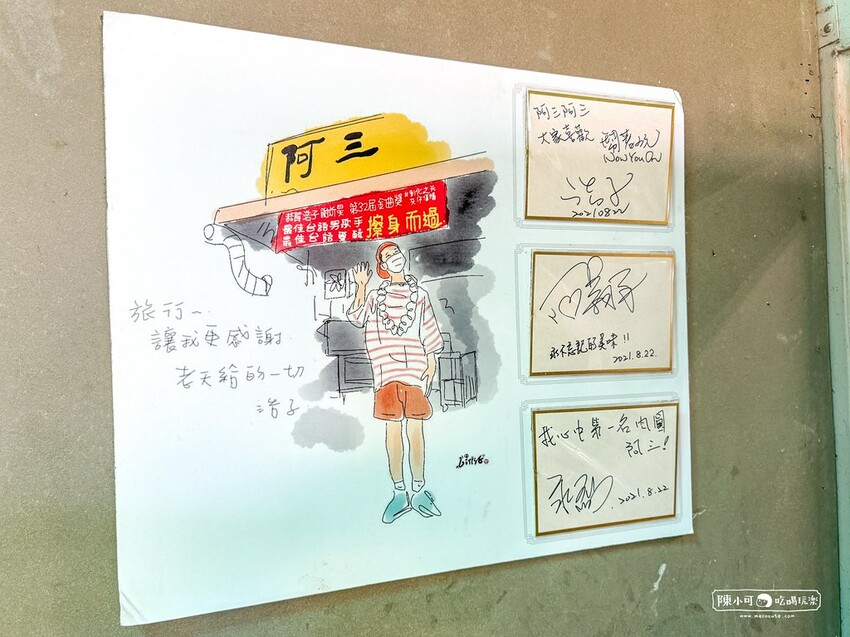 阿三
恭賀浩子 第32屆金曲獎
最佳台語男歌手
最佳台語專輯
擦身而過
旅行~
讓我更感謝
老天給的一切
浩子
阿三阿三
大家喜歡
Now You Can
浩子
20210822
永不忘記的美味!!
2021.8.22.
我心中第一名肉圓
阿三!
2021.8.22
陳小可 吃喝玩樂